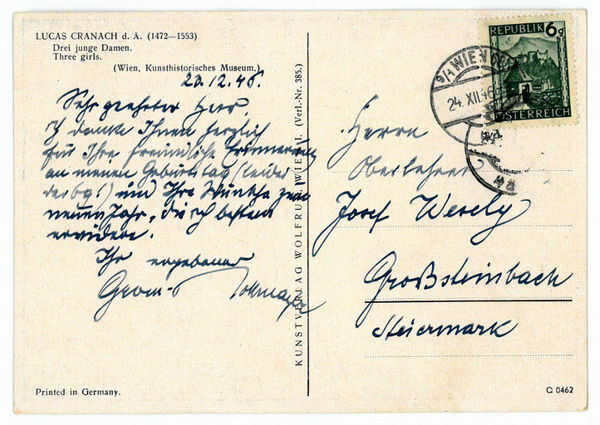 LUCAS CRANACH d. Ä. (1472—1553)
Drei junge Damen.
Three girls.
(Wien, Kunsthistorisches Museum.)
23.12.46.
Sehr geehrter Herr
Ich danke Ihnen herzlich
für Ihre freundliche Erinnerung
an meinen Geburtstag (leider
und Ihre Wünsche zum
neuen Jahr, die ich bestens
erwidere.
Ihr ergebener
Printed in Germany.
KUNSTVERLAG WOLFRUM, WIEN I. (Verl.-Nr. 385.)
REPUBLIK 6g
ÖSTERREICH
WIEN
24. XII. 46
Herrn
Oberlehrer
Josef Wesely
Großsteinbach
Steiermark
C 0462